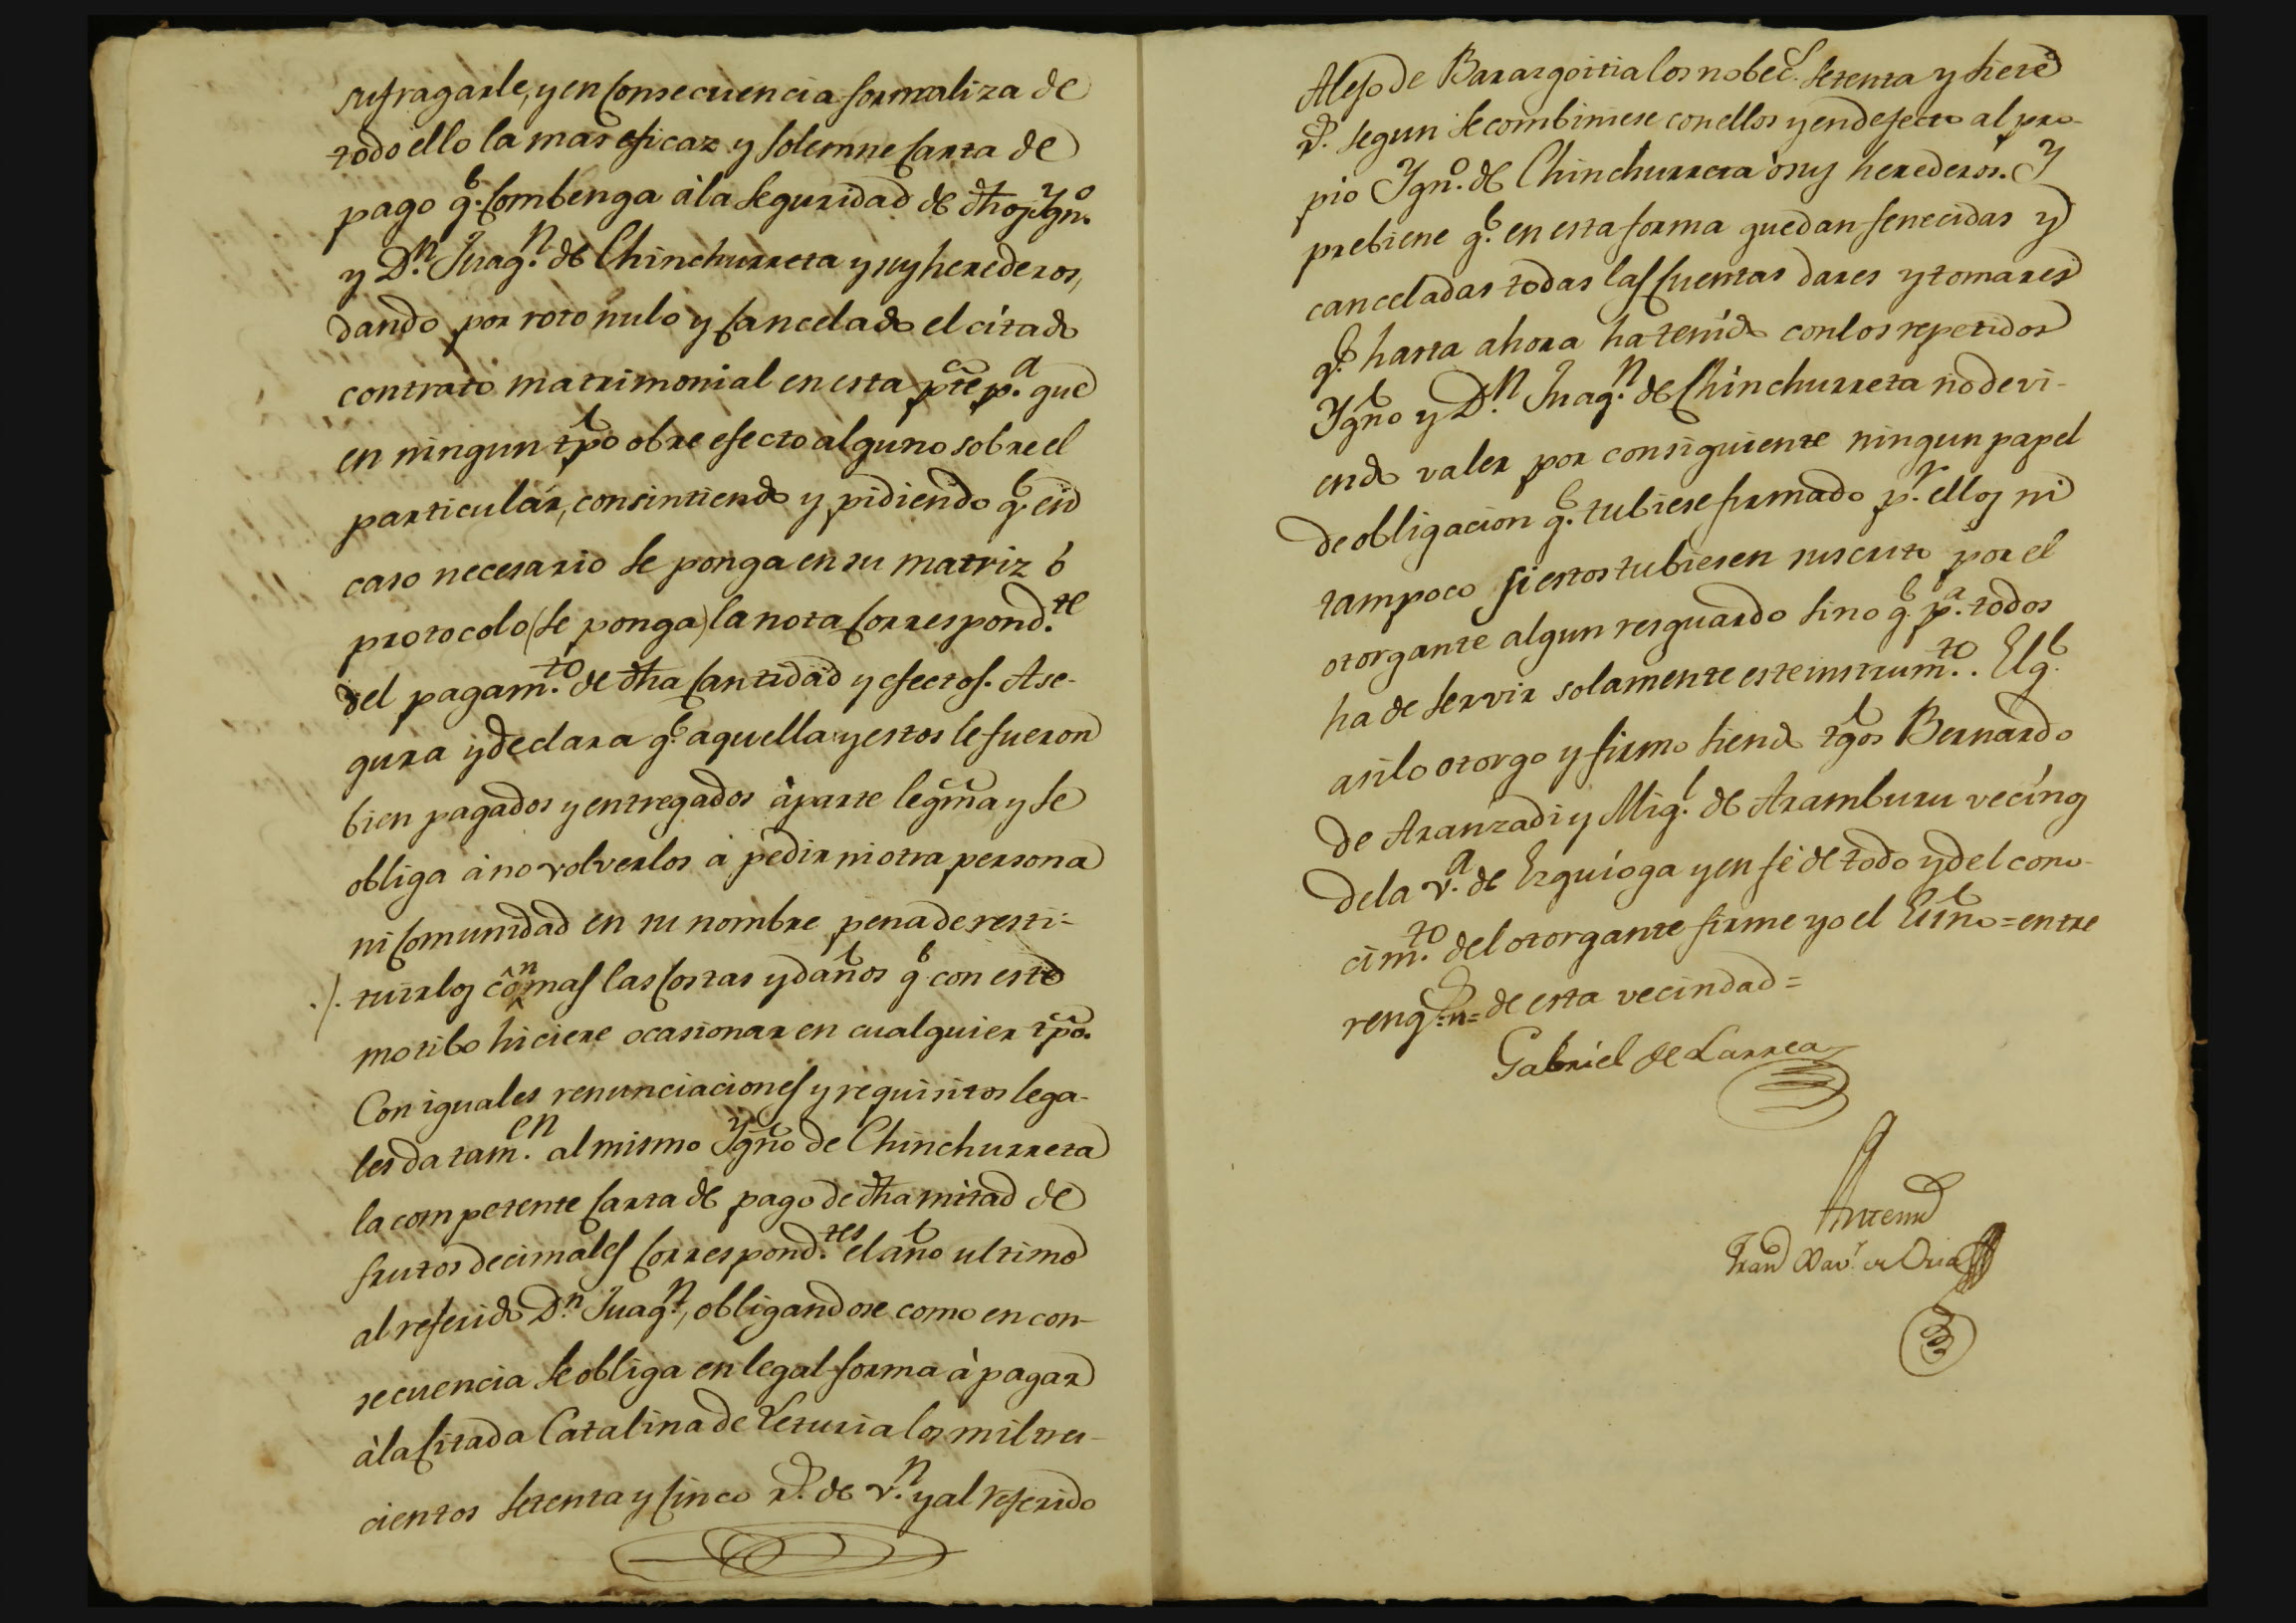 sufragarle, y en consecuencia formaliza de
todo ello la mas eficaz y solemne carta de
pago q.e combenga à la seguridad de dhos Ygn.o
y D.n Juaq.n de Chinchurreta y sus herederos,
dando por roto nulo y cancelado el citado
contrato matrimonial en esta pte p.a que
en ningun tpo obre efecto alguno sobre el
particular, consintiendo y pidiendo q.e en
caso necesario se ponga en su matriz ó
protocolo (se ponga) la nota correspond.te
del pagam.to de dha cantidad y efectos. Ase-
gura y declara q.e aquella y estos le fueron
bien pagados y entregados à parte legma y se
obliga à no volverlos à pedir ni otra persona
ni comunidad en su nombre pena de resti-
tuirlos con mas las costas y daños q.e con este
motibo hiciere ocasionar en cualquier tpo.
Con iguales renunciaciones y requisitos lega-
les da tam.en al mismo Ygño de Chinchurreta
la competente carta de pago de dha mitad de
frutos decimales correspond.tes el año ultimo
al referido D.n Juaq.n, obligandose como en con-
secuencia se obliga en legal forma à pagar
à la citada Catalina de Leturia los mil tres-
cientos setenta y cinco r.s de v.n y al referido
Alejo de Barazgoitia los nobec.s setenta y siete
r.s segun se combiniese con ellos y en defecto al pro-
pio Ygn.o de Chinchurreta ò sus herederos. Y
prebiene q.e en esta forma quedan fenecidas y
canceladas todas las cuentas dares y tomares
q.e hasta ahora ha tenido con los repetidos
Ygño y D.n Juaq.n de Chinchurreta no devi-
endo valer por consiguiente ningun papel
de obligacion q.e tubiese firmado p.r ellos ni
tampoco si estos tubiesen suscrito por el
otorgante algun resguardo sino q.e p.a todos
ha de servir solamente este instrum.to. El q.e
asi lo otorgo y firmo siendo tgos Bernardo
de Aranzadi y Mig.l de Aramburu vecinos
de la v.a de Ezquioga y en fé de todo y del cono-
cim.to del otorgante firme yo el Esño = entre
reng.s = n = de esta vecindad =
Gabriel de Larrea
Antemi
Fran.co Xav.r de Oria